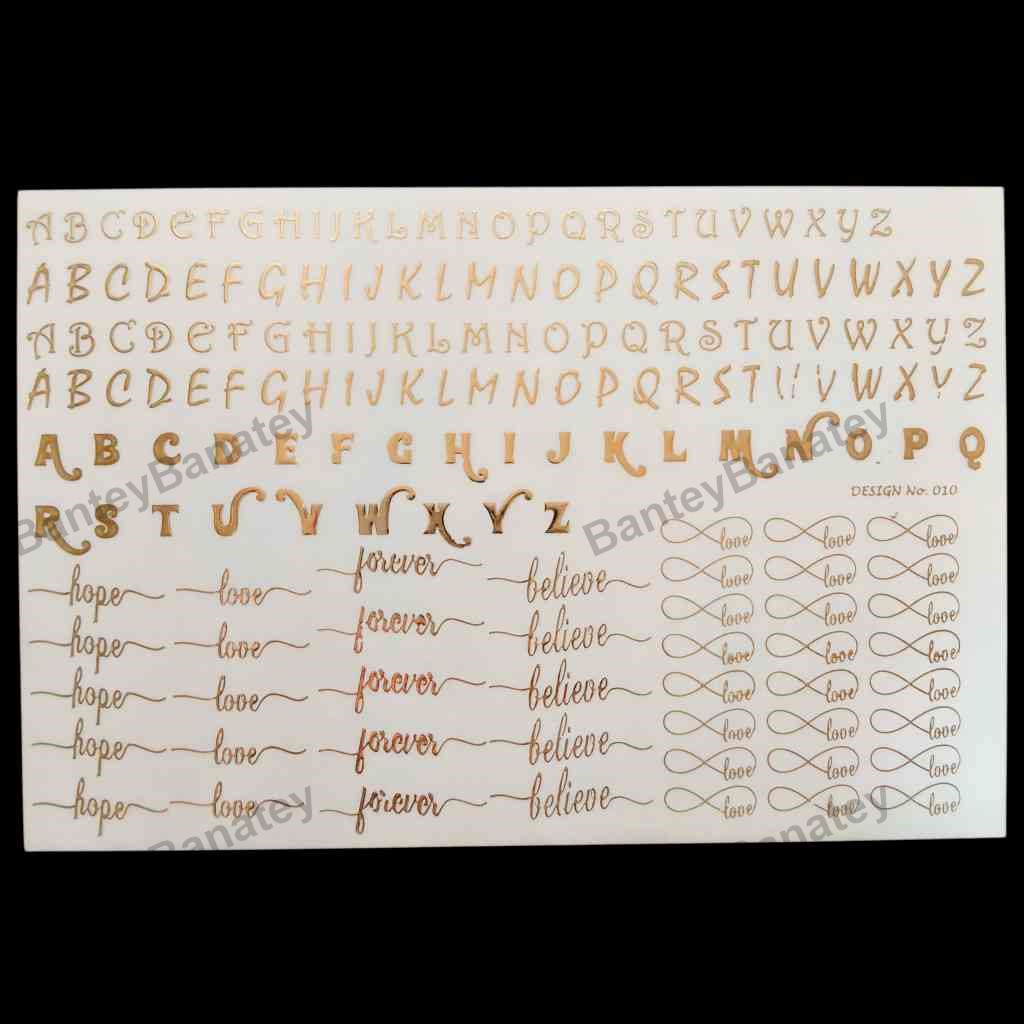 A B C D E F G H I J K L M N O P Q R S T U V W X Y Z
A B C D E F G H I J K L M N O P Q R S T U V W X Y Z
A B C D E F G H I J K L M N O P Q R S T U V W X Y Z
A B C D E F G H I J K L M N O P Q R S T U V W X Y Z
A B C D E F G H I J K L M N O P Q
DESIGN No. 010
R S T U V W X Y Z
BanteyBanatey BanteyBanatey
hope love forever believe
hope love forever believe
hope love forever believe
hope love forever believe
hope love forever believe
love love love
love love love
love love love
love love love
love love love
love love love
love love love
love love love
Banatey Banatey